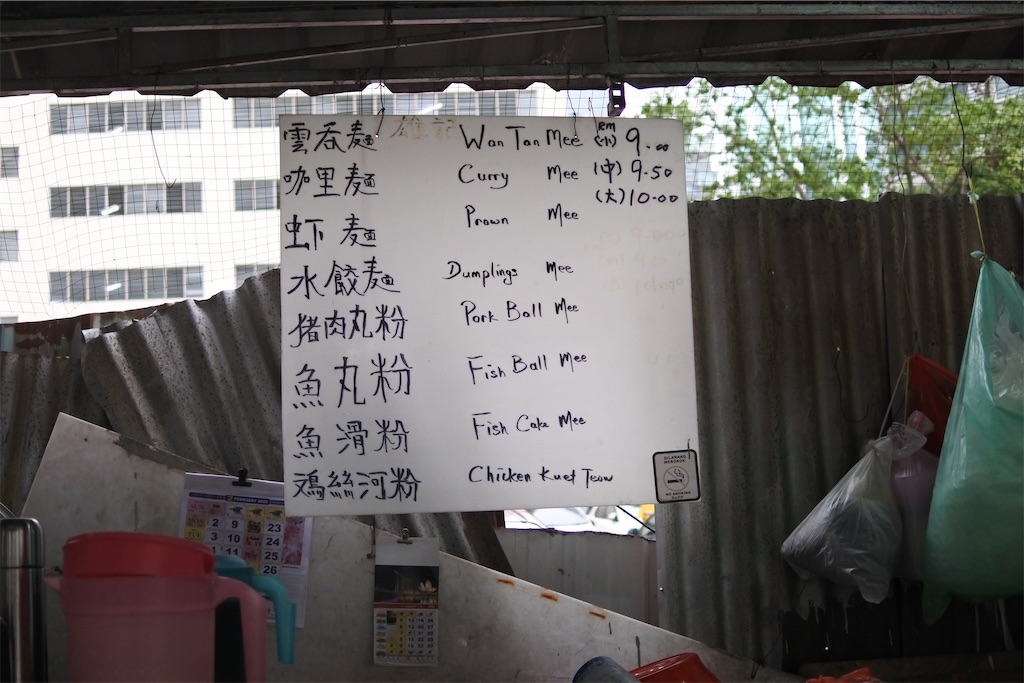 雲吞麵 Wan Tan Mee (小) 9.00
咖里麵 Curry Mee (中) 9.50
(大) 10.00
虾麵 Prawn Mee
水餃麵 Dumplings Mee
猪肉丸粉 Pork Ball Mee
魚丸粉 Fish Ball Mee
魚滑粉 Fish Cake Mee
鸡絲河粉 Chicken Kuey Teow
DILARANG MEROKOK
NO SMOKING
2 9 23
3 10 24
25
26